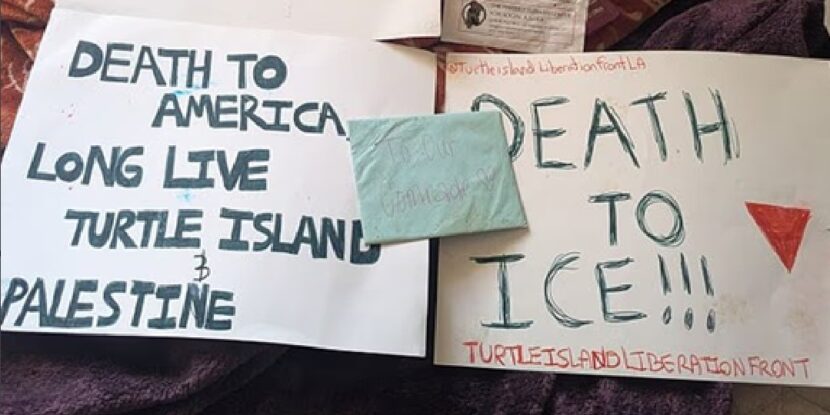 DEATH TO
AMERICA,
LONG LIVE
TURTLE ISLAND
&
PALESTINE
@TurtleislandLiberationfrontLA
DEATH
TO
ICE!!!
TURTLEISLANDLIBERATIONFRONT
TO OUR